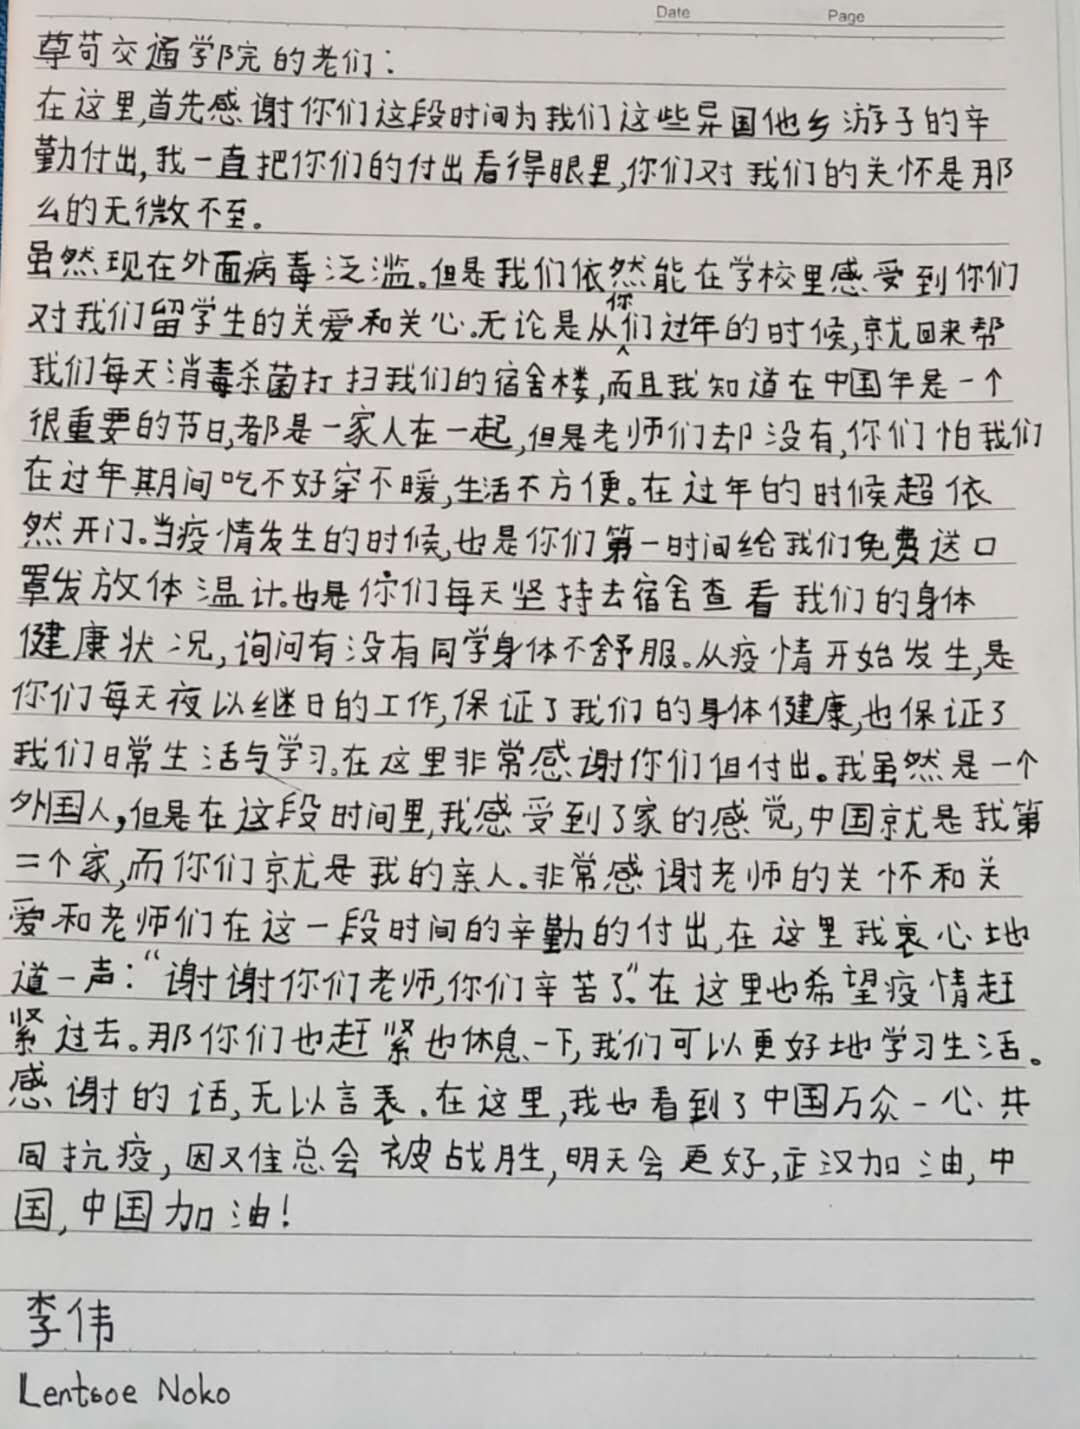 Date Page
尊苟交通学院的老们:
在这里,首先感谢你们这段时间为我们这些异国他乡游子的辛
勤付出,我一直把你们的付出看得眼里,你们对我们的关怀是那
么的无微不至。
虽然现在外面病毒泛滥。但是我们依然能在学校里感受到你们
对我们留学生的关爱和关心.无论是从你们过年的时候,就回来帮
我们每天消毒杀菌打扫我们的宿舍楼,而且我知道在中国年是一个
很重要的节日,都是一家人在一起,但是老师们却没有,你们怕我们
在过年期间吃不好穿不暖,生活不方便。在过年的时候超依
然开门。当疫情发生的时候,也是你们第一时间给我们免费送口
罩发放体温计.也是你们每天坚持去宿舍查看我们的身体
健康状况,询问有没有同学身体不舒服。从疫情开始发生,是
你们每天夜以继日的工作,保证了我们的身体健康,也保证了
我们日常生活与学习.在这里非常感谢你们但付出。我虽然是一个
外国人,但是在这段时间里,我感受到了家的感觉,中国就是我第
二个家,而你们就是我的亲人.非常感谢老师的关怀和关
爱和老师们在这一段时间的辛勤的付出,在这里我衷心地
道一声:“谢谢你们老师,你们辛苦了”.在这里也希望疫情赶
紧过去。那你们也赶紧也休息一下,我们可以更好地学习生活。
感谢的话,无以言表.在这里,我也看到了中国万众一心共
同抗疫,因又隹总会被战胜,明天会更好,武汉加油,中
国,中国加油!
李伟
Lentsoe Noko